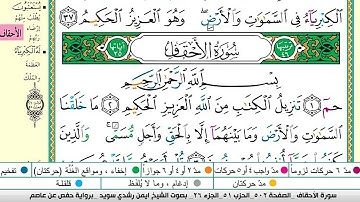 الْكِبْرِيَاءُ فِي السَّمَاوَاتِ وَالْأَرْضِ ۖ وَهُوَ الْعَزِيزُ الْحَكِيمُ ٣٧
سُورَةُ الْأَحْقَافِ
بِسْمِ اللَّهِ الرَّحْمَٰنِ الرَّحِيمِ
حمٓ ١ تَنزِيلُ الْكِتَابِ مِنَ اللَّهِ الْعَزِيزِ الْحَكِيمِ ٢ مَا خَلَقْنَا
السَّمَاوَاتِ وَالْأَرْضَ وَمَا بَيْنَهُمَا إِلَّا بِالْحَقِّ وَأَجَلٍ مُّسَمًّى ۚ وَالَّذِينَ
الأحقاف
مدّ ٦ حركات لزوماً
مدّ واجب ٤ أو ٥ حركات
مدّ ٢ أو ٤ أو ٦ جوازاً
إخفاء، ومواقع الغُنَّة (حركتان)
تفخيم
مدّ حركتان
إدغام، وما لا يُلفَظ
قلقلة
سورة الأحقاف
الصفحة ٥٠٢
الجزء ٢٦
بصوت الشيخ أيمن رشدي سويد
برواية حفص عن عاصم